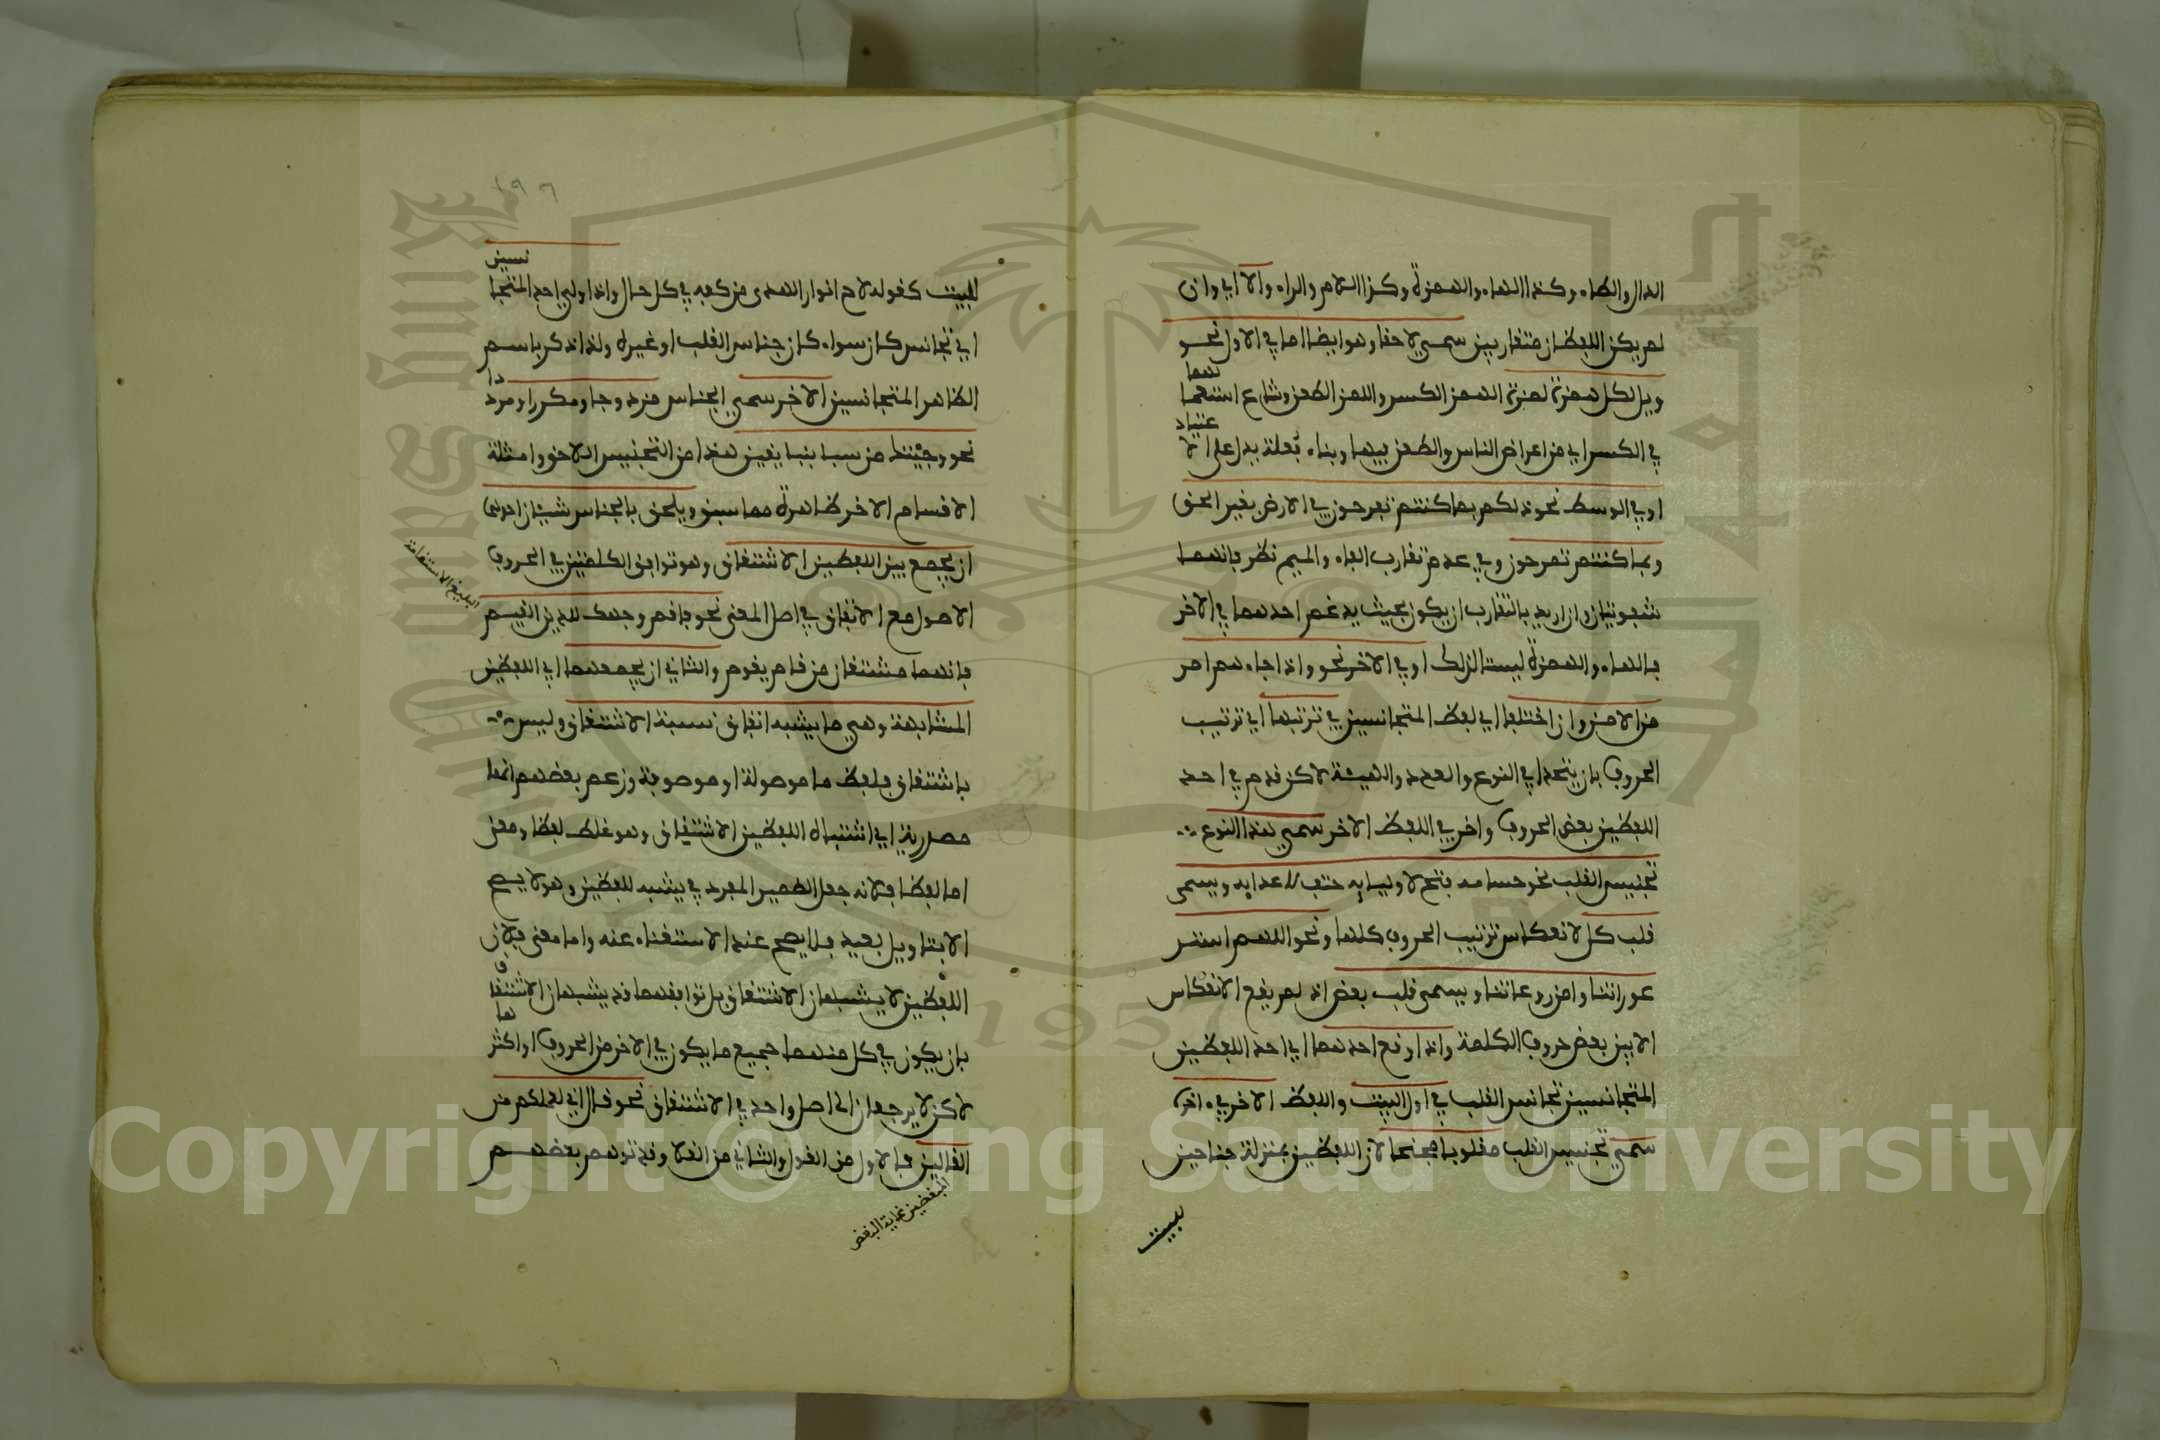 الدال والطاء وكذا الهاء والهمزة وكذا اللام والراء والا اي وان
لم يكن اللفظان متقاربين سمي لاحقا وهو ايضا اما في الاول نحو
ويل لكل همزة لمزة الهمز الكسر واللمز الطعن وشاع استعمالهما
في الكسر اي من اعراض الناس والطعن فيهما وبناء فعلة يدل على الاعتياد
او في الوسط نحو ذلكم بما كنتم تفرحون في الارض بغير الحق
وبما كنتم تمرحون وفي عدم تقارب الفاء والميم نظر فانهما
شفويتان وان اريد بالتقارب ان يكون بحيث يدغم احدهما في الاخر
فالهاء والهمزة ليستا كذلك او في الاخر نحو واذا جاءهم امر
من الامن وان اختلفا اي لفظ المتجانسين في ترتبها اي ترتيب
الحروف بان يتحدا في النوع والعدد والهيئة لاكن قدم في احد
اللفظين بعض الحروف واخر في اللفظ الاخر سمي هذا النوع
تجنيس القلب نحو حسامه فتح لاوليايه حتف لاعدايه ويسمى
قلب كل لانعكاس ترتيب الحروف كلها ونحو اللهم استر
عوراتنا وامن روعاتنا ويسمى قلب بعض اذ لم يقع الانعكاس
الا بين بعض حروف الكلمة واذا وقع احدهما اي احد اللفظين
المتجانسين تجانس القلب في اول البيت واللفظ الاخر في ءاخره
سمي تجنيس القلب مقلوبا مجنحا لان اللفظين بمنزلة جناحين
للبيت
للبيت كقوله لاح انوار الهدى من كفه في كل حال واذا ولي احد المتجانسين
اي تجانس كان سواء كان جناس القلب او غيره ولذا ذكر باسم
الظاهر المتجانسين الاخر سمي الجناس مزدوجا ومكررا ومرددا
نحو وجئتك من سبا بنبا يقين هذا من التجنيس اللاحق وامثلة
الاقسام الاخر ظاهرة مما سبق ويلحق بالجناس شيئان احدهما
ان يجمع بين اللفظين الاشتقاق وهو توافق الكلمتين في الحروف
الاصول مع الاتفاق في اصل المعنى نحو فاقم وجهك للدين القيم
فانهما مشتقان من قام يقوم والثاني ان يجمعهما اي اللفظين
المشابهة وهي ما يشبه اتفاق نسبة الاشتقاق وليس
باشتقاق فلفظ ما موصولة او موصوفة وزعم بعضهم انها
مصدرية اي اشتباه اللفظين الاشتقاق وهو غلط لفظا ومعنى
اما لفظا فلانه جعل الضمير المفرد في يشبه للفظين وهو لا يصح
الا بتاويل بعيد فلا يصح عند الاستغناء عنه واما معنى فلان
اللفظين لا يشبهان الاشتقاق بل توافقهما قد يشبهان الاشتقاق
بان يكون في كل منهما جميع ما يكون في الاخر من الحروف او اكثرها
لاكن لا يرجعان الى اصل واحد في الاشتقاق نحو قال اني لعملكم من
القالين فالاول من القول والثاني من القلا وقد توهم بعضهم
المبغضين غاية البغض
Copyright © King Saud University
King Saud University
1957